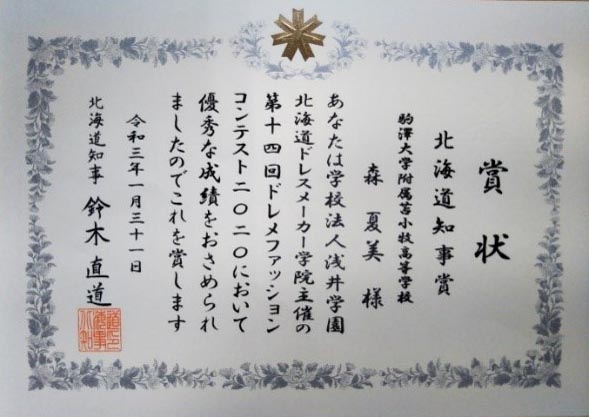 賞状
北海道知事賞
駒澤大学附属苫小牧高等学校
森夏美様
あなたは学校法人浅井学園
北海道ドレスメーカー学院主催の
第十四回ドレメファッション
コンテスト二〇二〇において
優秀な成績をおさめられ
ましたのでこれを賞します
令和三年一月三十一日
北海道知事 鈴木直道